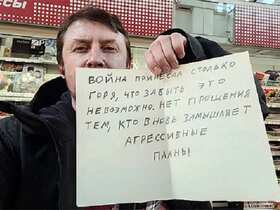 ВОЙНА ПРИНЕСЛА СТОЛЬКО
ГОРЯ, ЧТО ЗАБЫТЬ ЭТО
НЕВОЗМОЖНО. НЕТ ПРОЩЕНИЯ
ТЕМ, КТО ВНОВЬ ЗАМЫШЛЯЕТ
АГРЕССИВНЫЕ
ПЛАНЫ